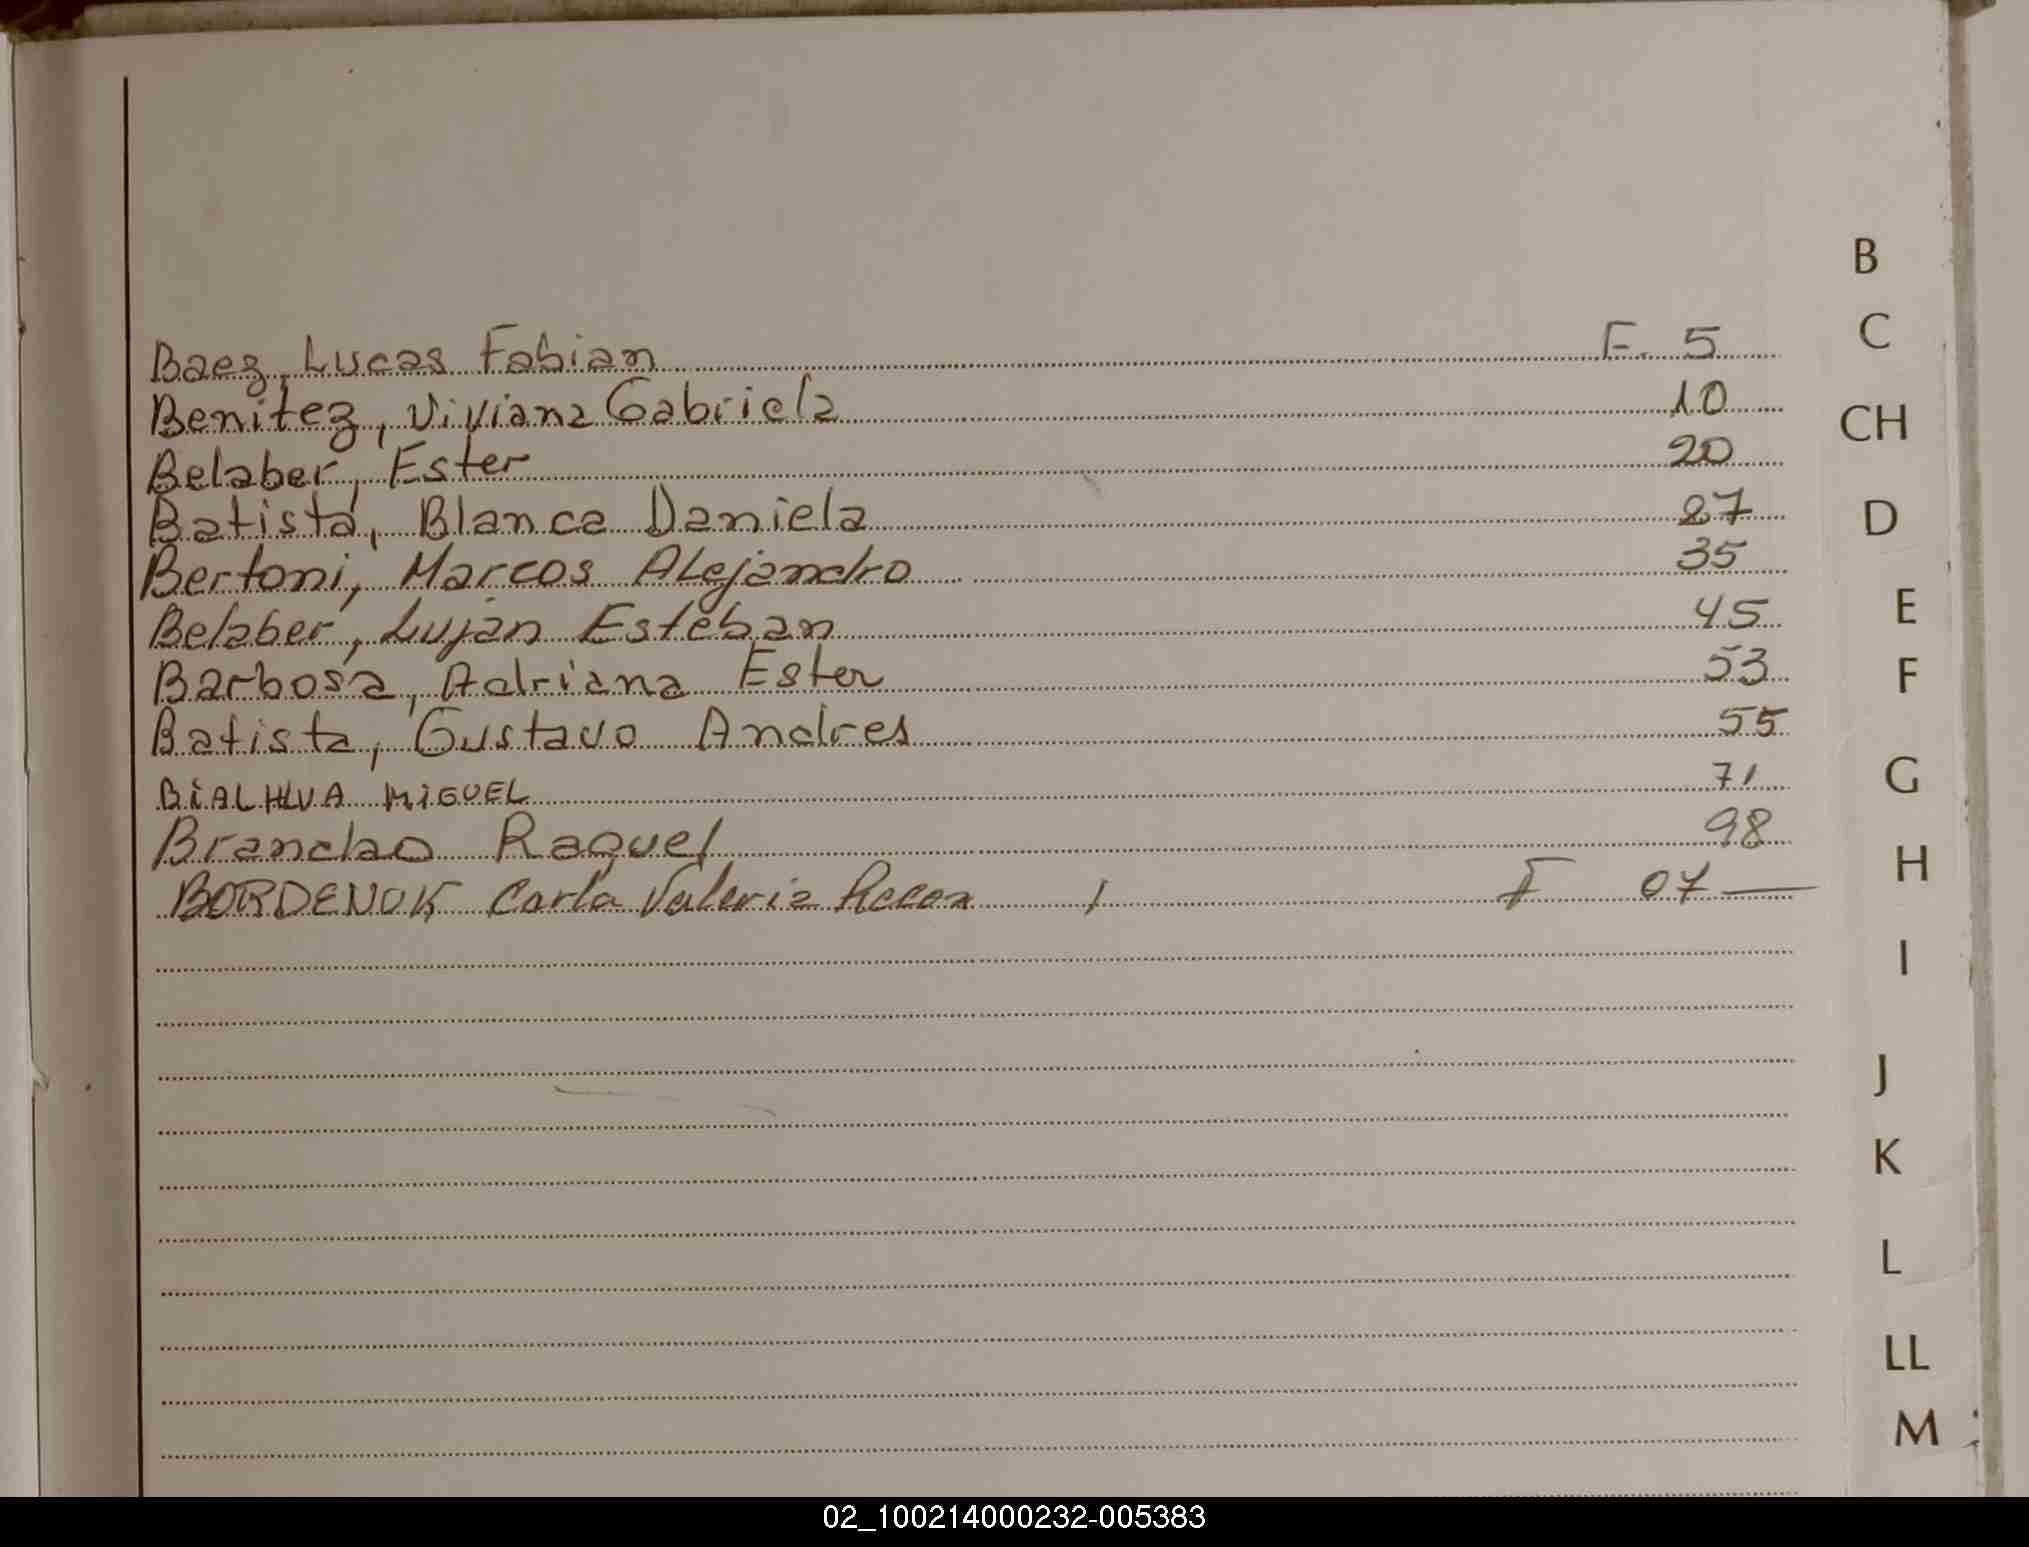 Baez, Lucas Fabian F. 5
Benitez, Viviana Gabriela 10
Belaber, Ester 20
Batista, Blanca Daniela 27
Bertoni, Marcos Alejandro 35
Belaber, Luján Esteban 45
Barbosa, Adriana Ester 53
Batista, Gustavo Andres 55
BIALHLVA MIGUEL 71
Brandao Raquel 98
BORDENOK Carla Valeria F 07
B
C
CH
D
E
F
G
H
I
J
K
L
LL
M
02_100214000232-005383